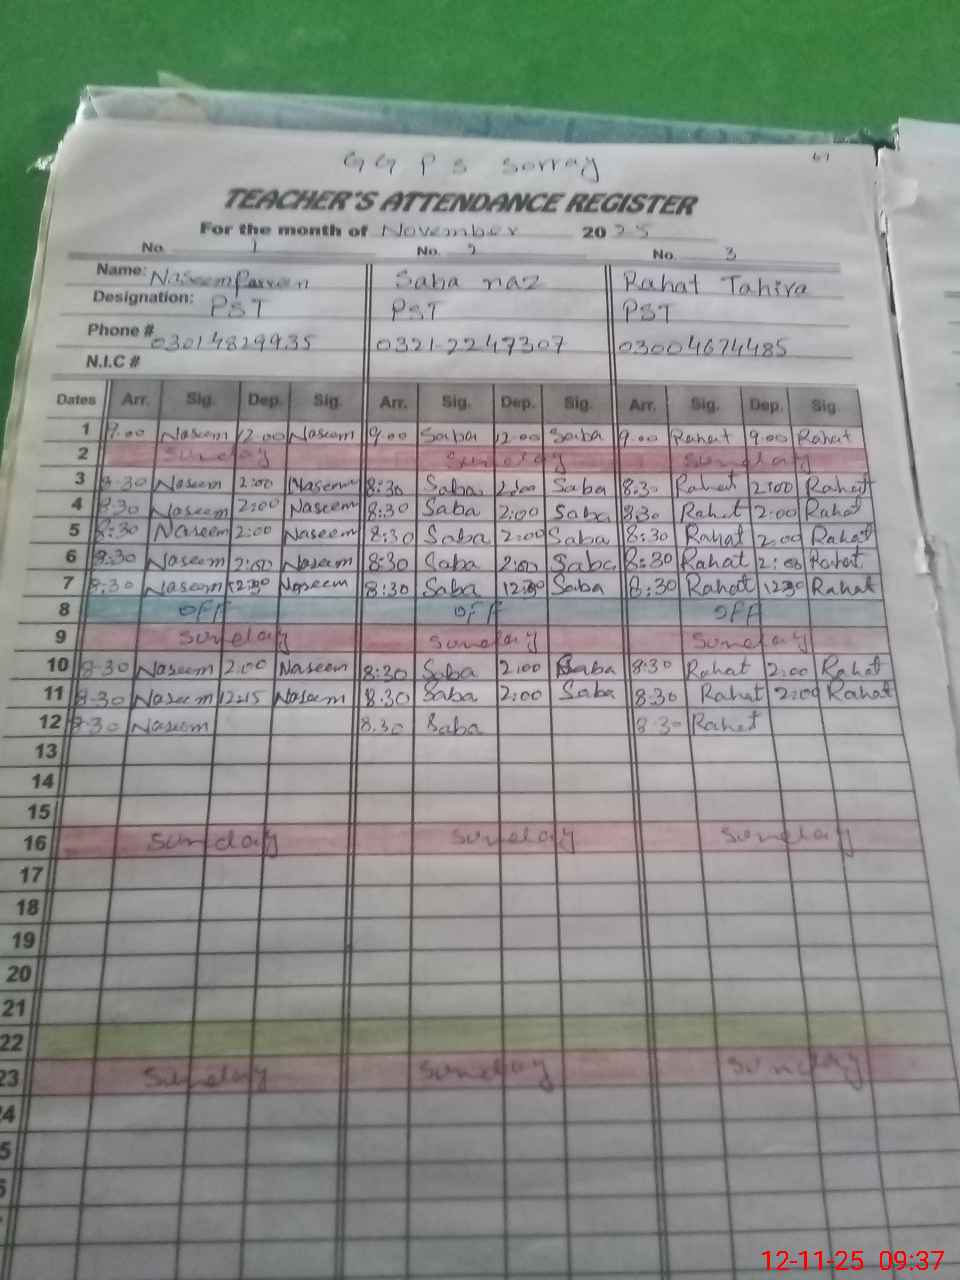 GGPS Sorray 61
TEACHER'S ATTENDANCE REGISTER
For the month of November 2025
No. 1 No. 2 No. 3
Name: Naseem Parveen Saba naz Rahat Tahira
Designation: PST PST PST
Phone # 03014829935 0321-2247307 03004674485
N.I.C #
Dates Arr. Sig. Dep. Sig. Arr. Sig. Dep. Sig. Arr. Sig. Dep. Sig
1 9.00 Naseem 12.00 Naseem 9.00 Saba 12.00 Saba 9.00 Rahat 9.00 Rahat
2 Sunday Sunday Sunday
3 8.30 Naseem 2:00 Naseem 8:30 Saba 2:00 Saba 8.30 Rahat 2:00 Rahat
4 8.30 Naseem 2:00 Naseem 8:30 Saba 2:00 Saba 8.30 Rahat 2.00 Rahat
5 8:30 Naseem 2:00 Naseem 8:30 Saba 2:00 Saba 8:30 Rahat 2.00 Rahat
6 8.30 Naseem 2:00 Naseem 8:30 Saba 2:00 Saba 8:30 Rahat 2:00 Rahat
7 8:30 Naseem 12:30 Naseem 8:30 Saba 12:30 Saba 8:30 Rahat 12:30 Rahat
8 OFF OFF OFF
9 Sunday Sunday Sunday
10 8-30 Naseem 2:00 Naseem 8:30 Saba 2:00 Saba 8:30 Rahat 2:00 Rahat
11 8.30 Naseem 12:15 Naseem 8.30 Saba 2:00 Saba 8:30 Rahat 2:00 Rahat
12 8.30 Naseem 8.30 Saba 8.30 Rahat
13
14
15
16 Sunday Sunday Sunday
17
18
19
20
21
22
23 Sunday Sunday Sunday
12-11-25 09:37